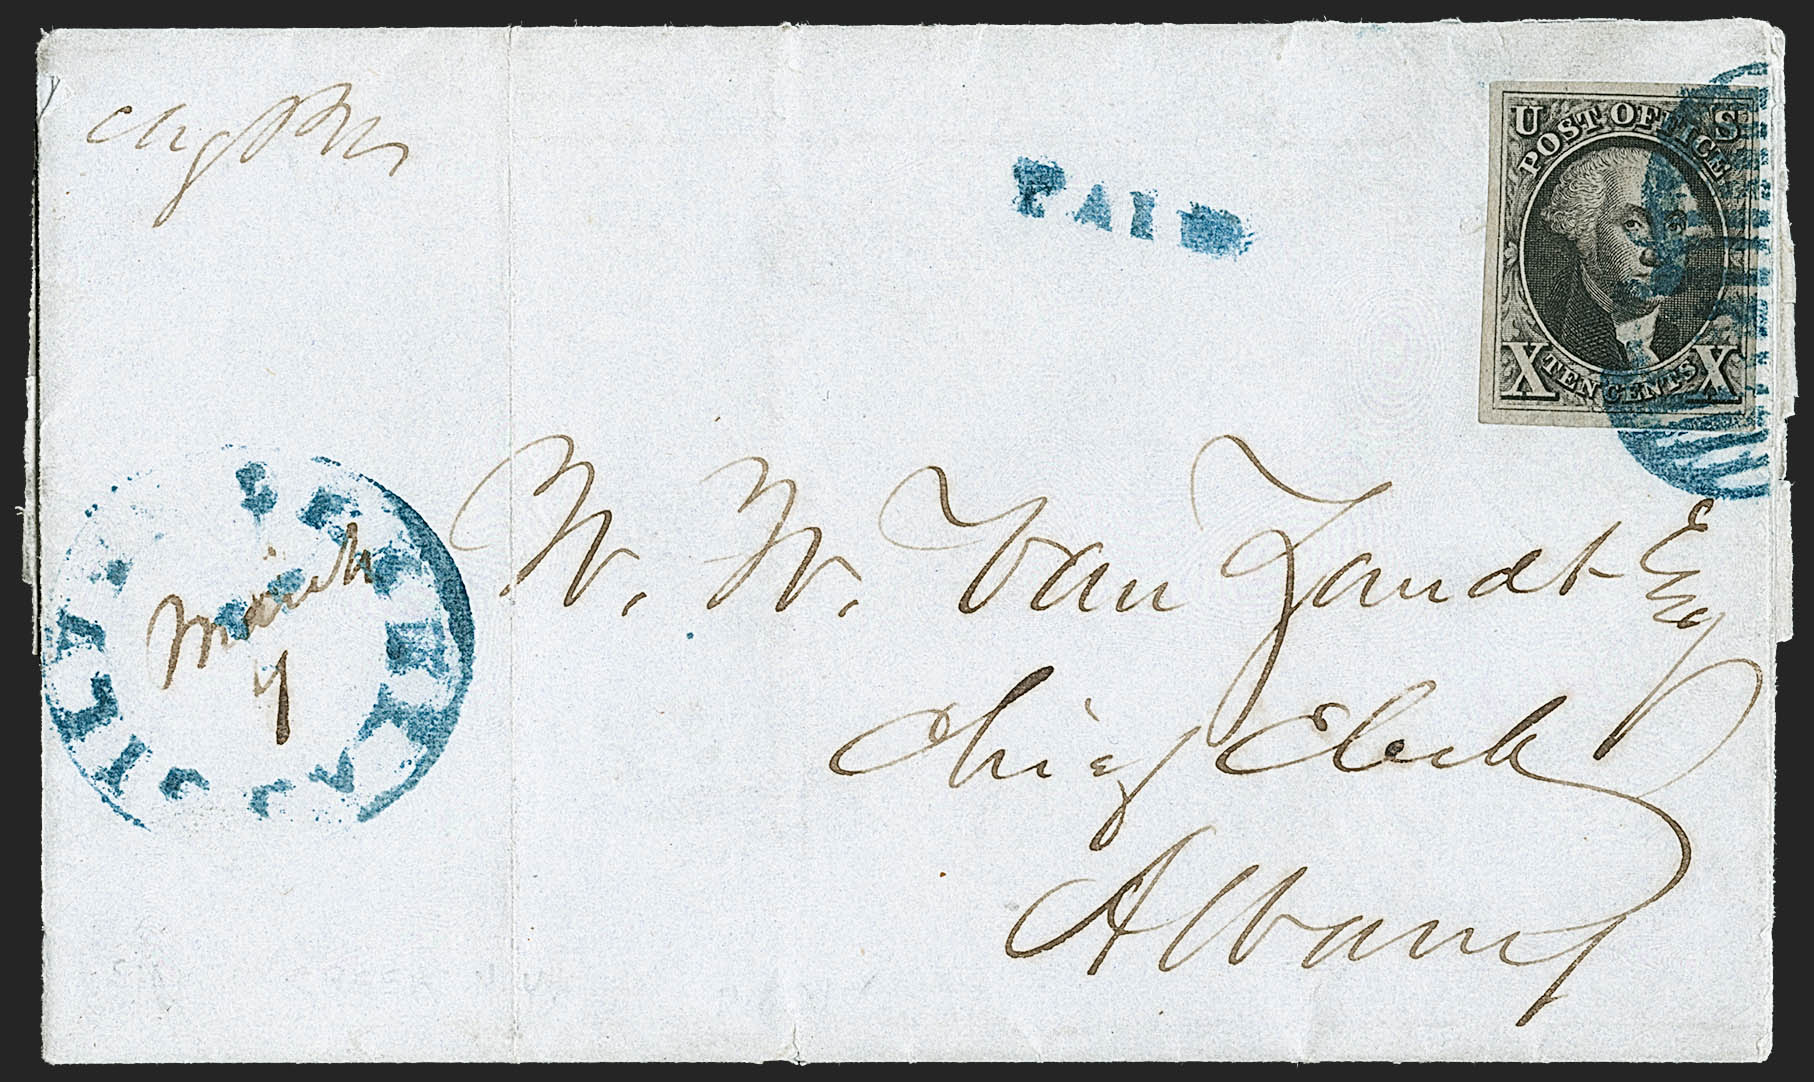 U S
POST OFFICE
X TEN CENTS X
PAID
March
7
W. W. Van Zandt Esq
Chief Clerk
Albany